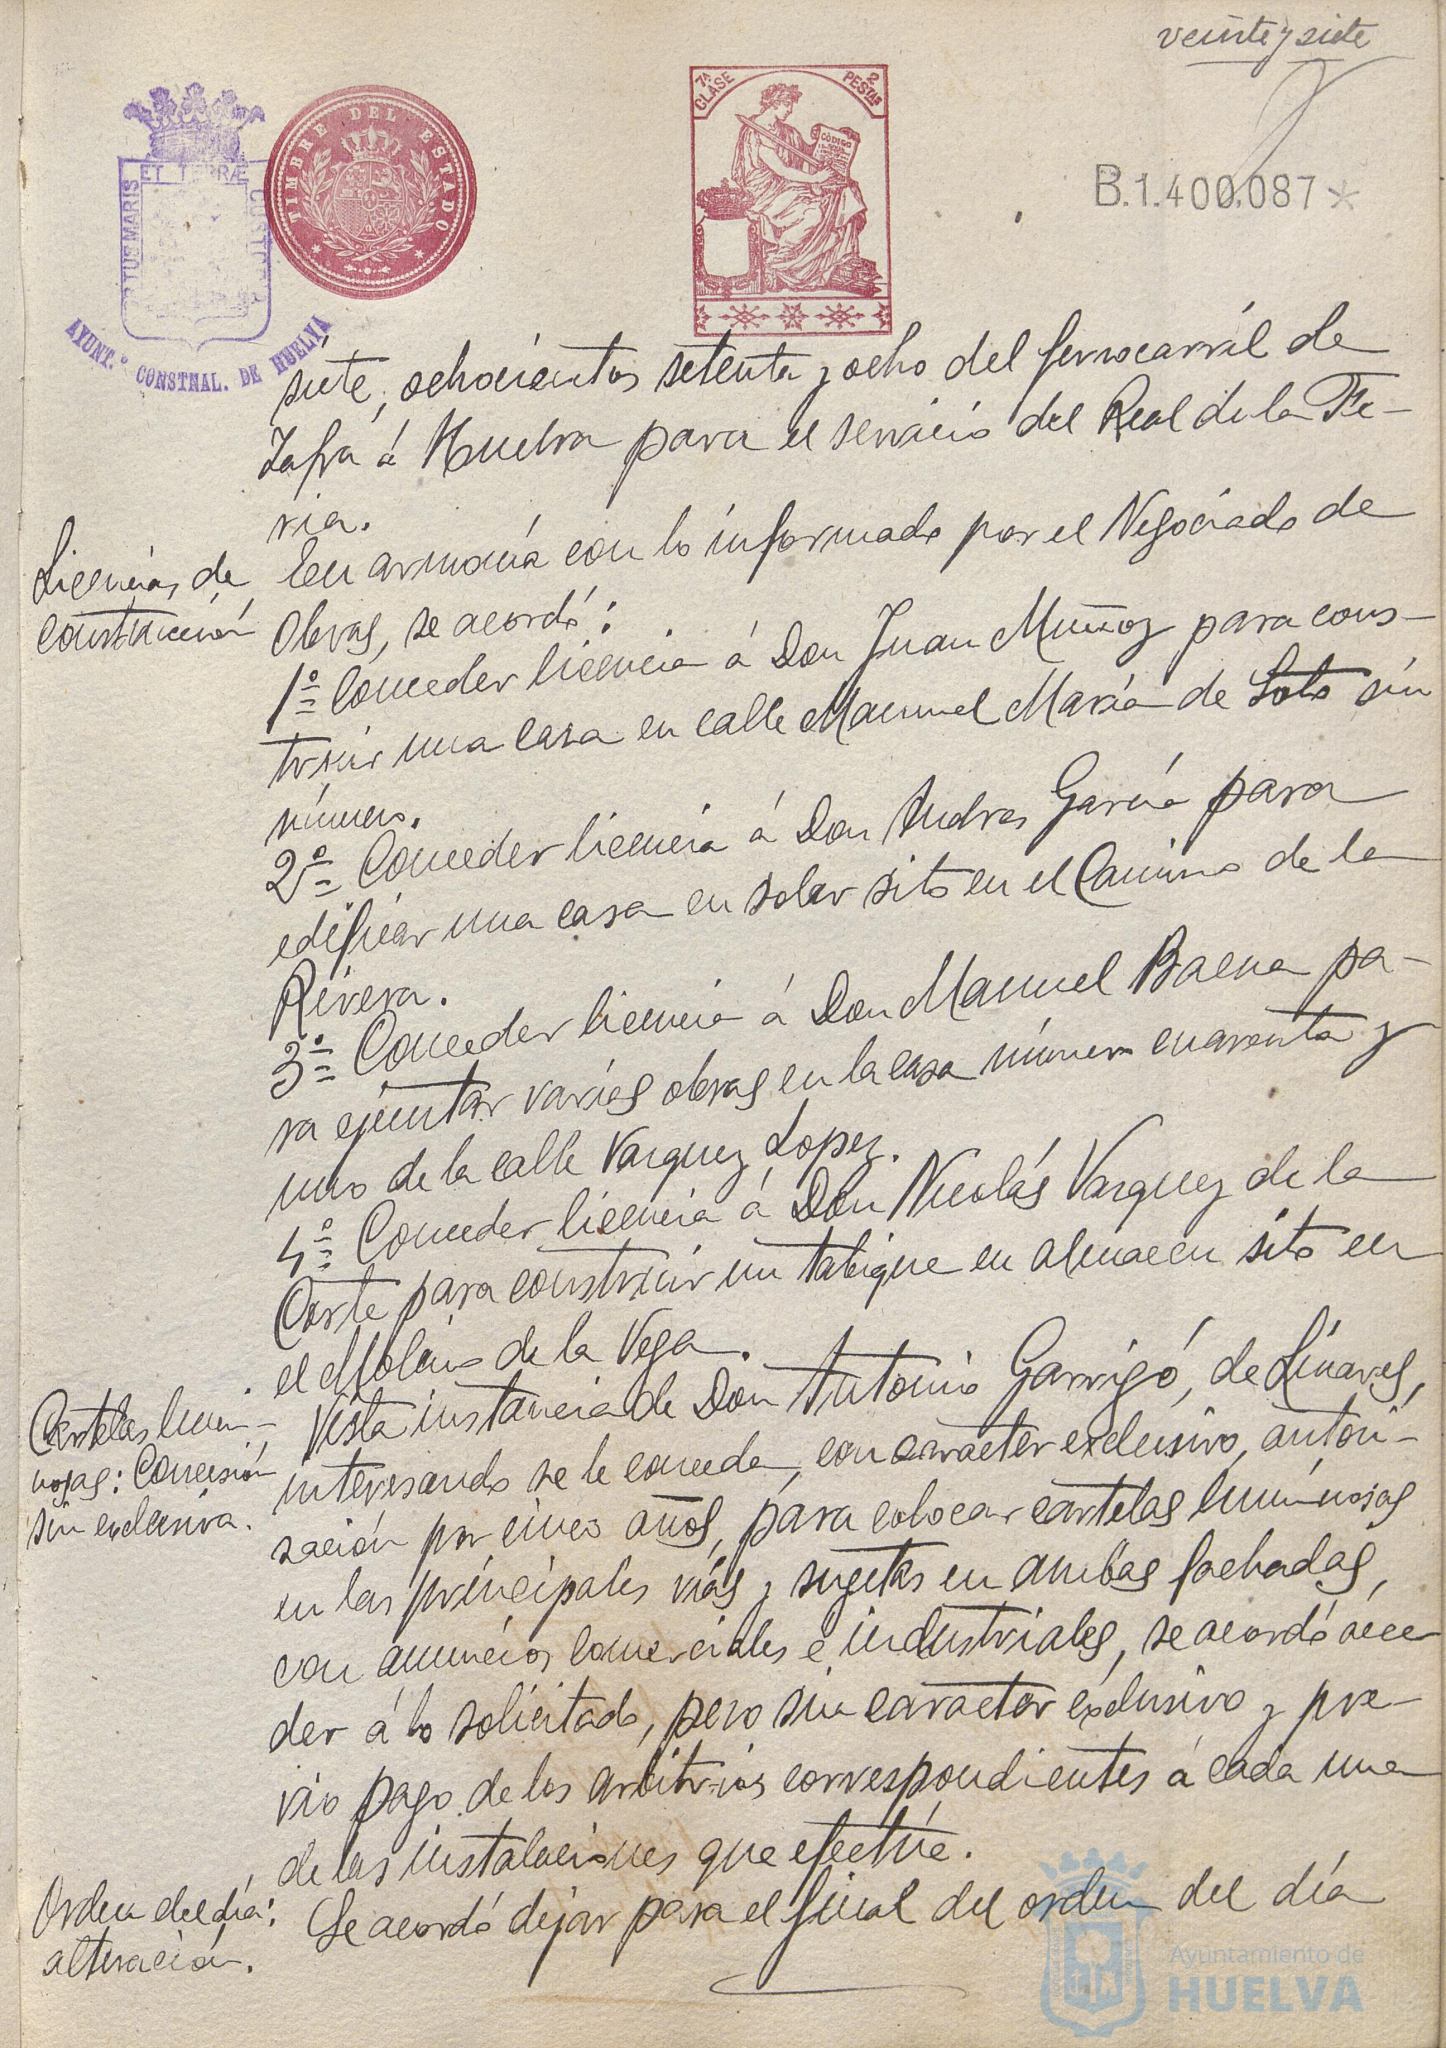 veinte y siete
7ª CLASE
2 PESTAS
TIMBRE DEL ESTADO
CODIGO
ET TERRÆ
PORTUS MARIS
CUSTODIA
AYUNT.º CONSTNAL. DE HUELVA
B.1.400.087*
siete, ochocientos setenta y ocho del ferrocarril de
Zafra á Huelva para el servicio del Real de la Fe-
ria.
Licencias de
construcción
En armonía con lo informado por el Negociado de
Obras, se acordó:
1º Conceder licencia á Don Juan Muñoz para cons-
truir una casa en calle Manuel María de Soto sin
número.
2º Conceder licencia á Don Andres García para
edificar una casa en solar sito en el Camino de la
Rivera.
3º Conceder licencia á Don Manuel Baena pa-
ra ejecutar varias obras en la casa número cuarenta y
uno de la calle Vazquez Lopez.
4º Conceder licencia á Don Nicolás Vazquez de la
Corte para construir un tabique en almacen sito en
el Molino de la Vega.
Cartelas lumi-
nosas: Concesión
sin exclusiva.
Vista instancia de Don Antonio Garrigó, de Linares,
interesando se le conceda, con caracter exclusivo, autori-
zación por cinco años, para colocar cartelas luminosas
en las principales vías y sujetas en ambas fachadas,
con anuncios comerciales é industriales, se acordó acce
der á lo solicitado, pero sin caracter exclusivo y pre-
vio pago de los arbitrios correspondientes á cada una
de las instalaciones que efectúe.
Orden del día:
alteración.
Se acordó dejar para el final del orden del día
Ayuntamiento de
HUELVA